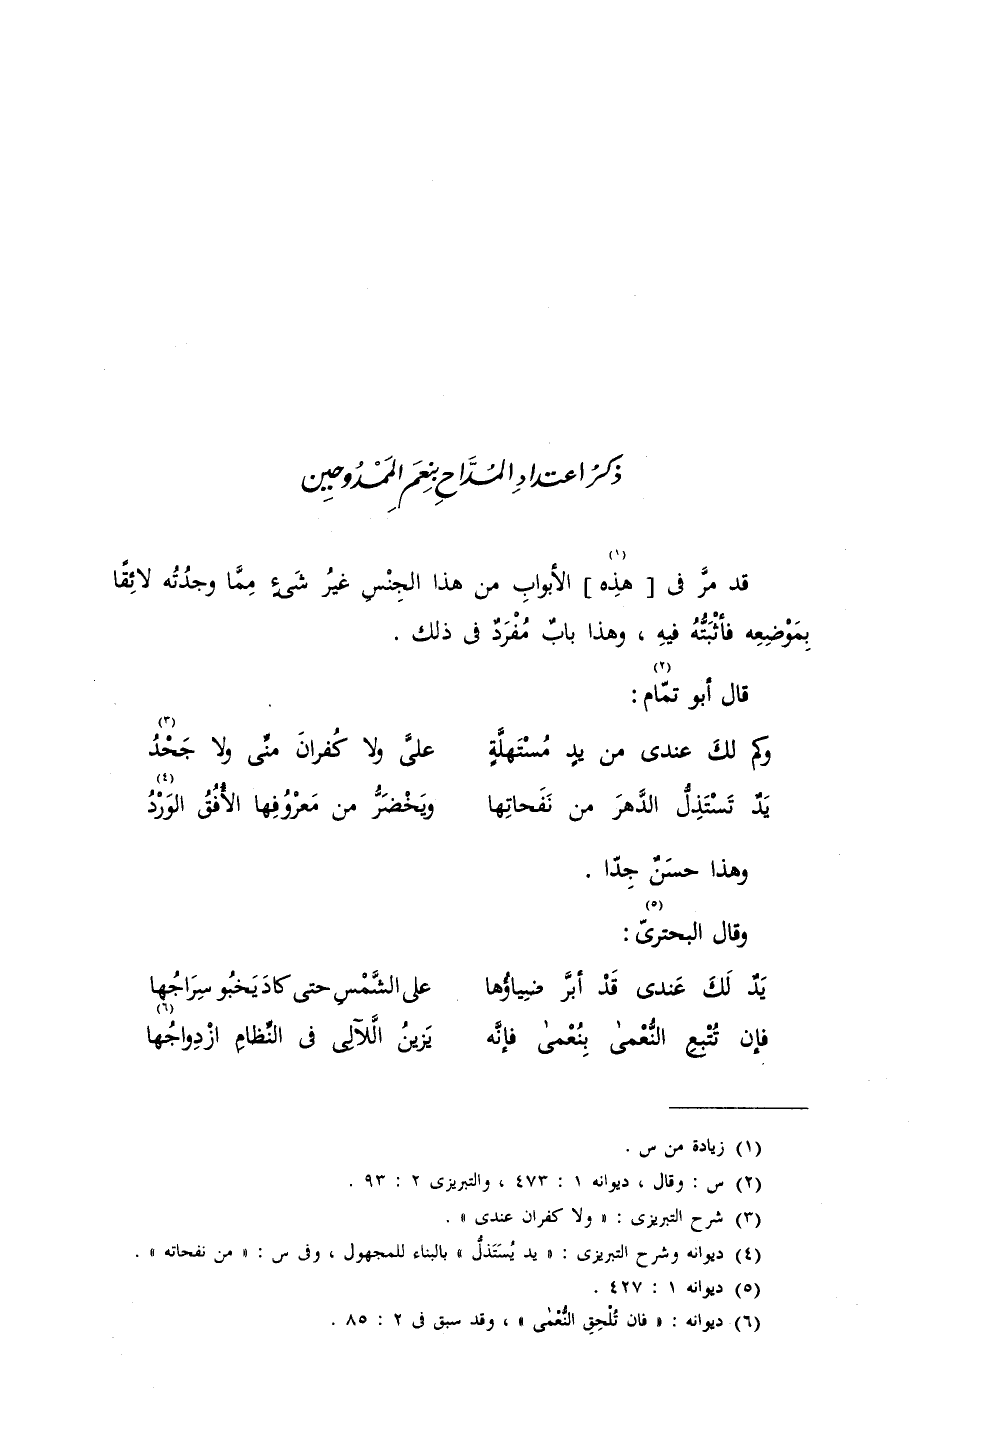 ذكرُ اعتدادِ المُدَّاحِ بنِعَمِ المَمْدُوحِين
(١)
قد مرَّ فى [ هذِه ] الأبوابِ من هذا الجِنْسِ غيرُ شَىءٍ مِمَّا وجدُتُه لائِقًا
بِمَوْضِعِه فأثْبَتُّهُ فيهِ ، وهذا بابٌ مُفْرَدٌ فى ذلك .
(٢)
قال أبو تمّام :
(٣)
وكم لكَ عندى من يدٍ مُسْتَهلَّةٍ علىَّ ولا كُفرانَ منِّى ولا جَحْدُ
(٤)
يَدٌ تَسْتَذِلُّ الدَّهرَ من نَفَحاتِها ويَخْضَرُّ من مَعْرُوفِها الأُفُقُ الوَرْدُ
وهذا حسَنٌ جِدّا .
(٥)
وقال البحترىّ :
يَدٌ لَكَ عَندى قَدْ أبَرَّ ضيِاؤُها على الشَّمْسِ حتى كادَ يَخبُو سِرَاجُها
(٦)
فإن تُتْبِعِ النُّعْمىٰ بِنُعْمىٰ فإنَّه يَزينُ الَّلآلِى فى النِّظامِ ازْدِواجُها
(١) زيادة من س .
(٢) س : وقال ، ديوانه ١ : ٤٧٣ ، والتبريزى ٢ : ٩٣ .
(٣) شرح التبريزى : « ولا كفران عندى » .
(٤) ديوانه وشرح التبريزى : « يد يُسَتَذلُّ » بالبناء للمجهول ، وفى س : « من نفحاته » .
(٥) ديوانه ١ : ٤٢٧ .
(٦) ديوانه : « فان تُلْحِقِ النُّعْمٰى » ، وقد سبق فى ٢ : ٨٥ .